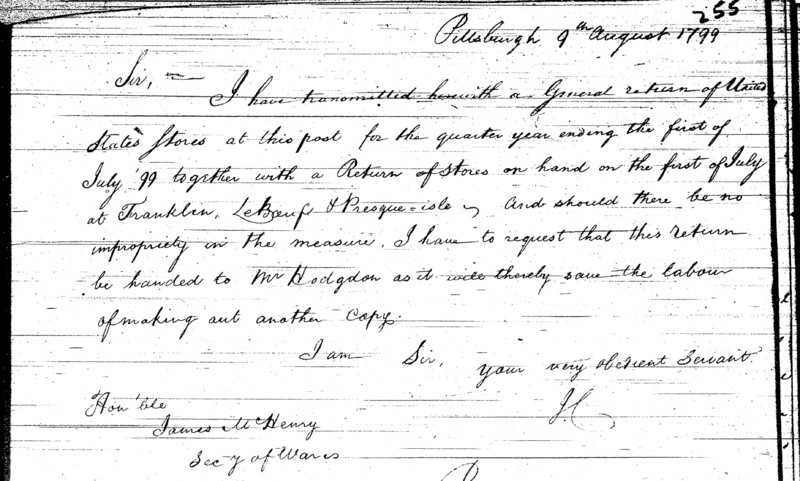 255
Pittsburgh 9th August 1799
Sir,
I have transmitted herewith a General return of United
States Stores at this post for the quarter year ending the first of
July '99 together with a Return of Stores on hand on the first of July
at Franklin, LeBœuf & Presque=isle and should there be no
impropriety in the measure, I have to request that this return
be handed to Mr Hodgdon as it will thereby save the labour
of making out another Copy.
I am Sir, your very obedient Servant
Hon'ble
James McHenry
Sec'y of War